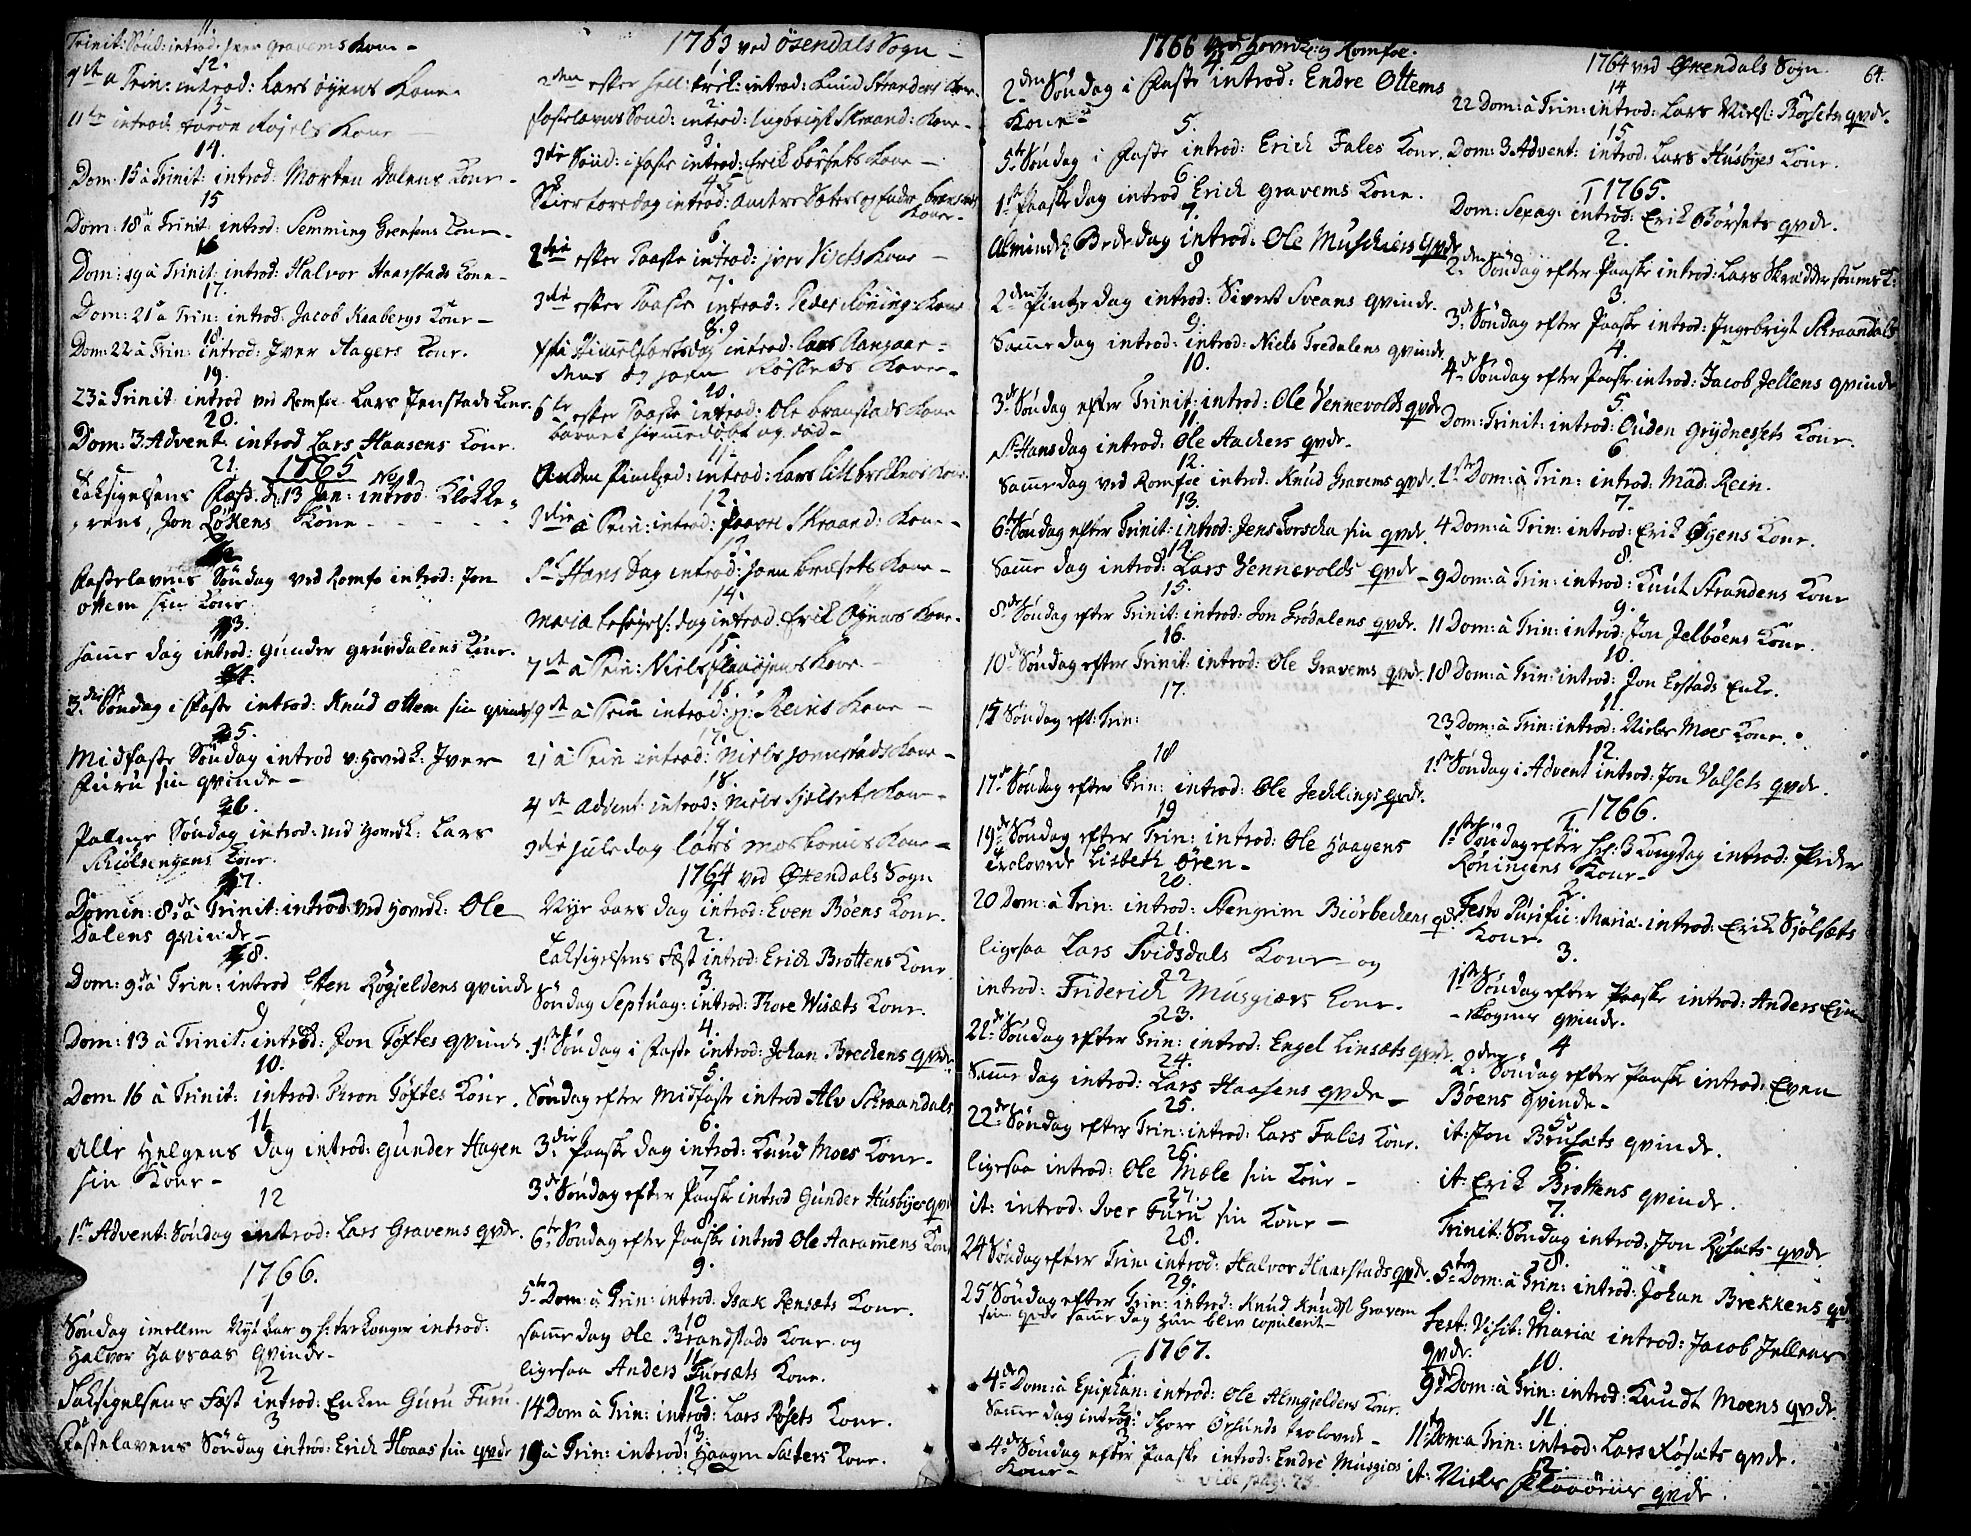 11
Trinit: Sönd: introd: Iver Gravems Kone -
12.
9de a Trin: introd: Lars Øyens Kone
13
11te introd: Kone
14.
Dom: 15 à Trinit: introd: Morten Dalens Kone -
15
Dom: 18 à Trinit: introd: Semming Grensens Kone -
16
Dom: 19 à Trinit: introd: Halvor Haarstads Kone -
17.
Dom: 21 à Trin: introd: Jacob Raabergs Kone -
18.
Dom: 22 à Trin: introd: Iver Hagers Kone.
19.
23 à Trinit: introd ved Romfoe Lars Jenstads Kone.
20.
Dom: 3 Advent: introd Lars Haasens Kone.
21. 1765 No 1
Taksigelsens Fæst. d. 13 Jan: introd. Klokke-
rens, Jon Løkkens Kone - - - - -
2
Fastelavens Söndag ved Romfo introd: Jon
Ottem sin Kone
3.
samme dag introd: Gunder Gruvdalens Kone.
4.
3die Söndag i Faste introd: Knud Ottem sin qvinde
5.
Midfaste Söndag introd v: Hovedk: Iver
Furu sin qvinde -
6.
Palme Söndag introd: ved Hovedk: Lars
Kone.
7.
Domin: 8de à Trinit: introd: ved Hovedk: Ole
Dalens qvinde -
8.
Dom: 9de à Trin: introd Esten Røgjeldens qvinde
9
Dom: 13 à Trinit: introd: Jon Tøftes qvinde
10.
Dom 16 à Trinit: introd: Tron Tøftes Kone.
11
Alle Helgens Dag introd: Gunder Hagen
sin Kone -
12
1ste Advent: Söndag introd: Lars Gravems qvde.
1766.
1
Söndag imellem Nytaar og h: tre Konger introd:
Halvor Havsaas Qvinde -
2
Taksigelsens Fæst introd: Enken Guru Furu
3
Fastelavens Söndag introd: Erich Hoaas sin qvde
1763 ved Øxendals Sogn -
1
2den efter hell: trek: introd: Knud Strandens Kone.
2
Fastelavens Sönd: introd: Ingbrigt Skraand: Kone -
3.
3die Sönd: i Faste introd: Erik Børsets Kone -
4. 5
Skiertorsdag introd: Andres Sæters og Peder
Kone -
6
2den efter Paaske introd: Iver Visets Kone -
7.
3die efter Paaske introd: Peder Röning: Kone
8. 9
Christi Himmelfartsdag introd: Lars
og Kone -
10.
6te efter Paaske introd: Ole Branstads Kone
barnet hiemmedøbt og død -
11.
Anden Pindsed: introd: Lars Lillbrekkens Kone.
12.
3die à Trin: introd: Skraand: Kone -
13.
St Hans Dag introd: Jonn Brusets Kone -
14
Mariæ besøgels: dag introd: Erik Øyens Kone.
15.
7de à Trin: Niels Flaaøyens Kone -
16.
19de à Trin introd: Hr: Reins Kone -
17.
21 à Trin introd: Niels Jonnstads Kone -
18.
4de Advent: introd: Niels Siølsets Kone -
19
3die Juledag Lars Kone -
1764 ved Øxendals Sogn
1
Nye Aars dag introd: Even Böens Kone.
2.
Taksigelsens Fæst introd: Erich Brottens Kone
3.
Söndag Septuag: introd: Thore Wisæts Kone.
4.
1ste Söndag i Faste introd: Johan Breckens qvde.
5.
Söndag efter Midfaste introd Alv Schraandals
6.
3die Paaske dag introd: Knud Moes Kone -
7
3de Söndag efter Paaske introd Gunder Husbyes qvde
8
6te Söndag efter Paaske introd Ole Aarammens Kone
9.
5te Dom: à Trin: introd: Isak Rensæts Kone.
10
samme dag Ole Brandstads Kone og
11.
ligesaa Anders Fursæts Kone.
12.
14 Dom à Trin: introd: Lars Røsets Kone.
13.
19 à Trin: introd: Haagen Sæters Kone.
1766 ved Hovedk: og Romfoe.
4
2den Söndag i Faste introd: Endre Ottems
Kone -
5.
5te Söndag i Faste introd: Erich Fales Kone.
6.
1ste Paaske dag introd Erich Gravems Kone.
7.
Almindel: Bededag introd: Ole Muschiers Qvde
8
2den Pintze dag introd: Sivert Sveans qvinde.
9.
Samme dag introd: introd: Niels Tredalens qvinde.
10.
3de Söndag efter Trinit: introd: Ole Vennevolds qvde
11.
St Hans dag introd: Ole Aachers qvde.
12.
Samme dag ved Romfoe introd: Knud Gravems qvde.
13.
6te Söndag efter Trinit: introd: Jens Torscha sin qvde.
14.
Samme dag introd: Lars Vennevolds qvde -
15.
8de Söndag efter Trinit: introd: Jon Grødalens qvde.
16.
10de Söndag efter Trinit: introd: Ole Gravems qvde.
17.
15 Söndag eft: Trin:
18
17de Söndag efter Trin: introd: Ole Jecklings qvde.
19
19de Söndag efter Trin: introd: Ole Haagens
trolovede Lisbeth Ören -
20.
20 Dom: à Trin: introd: Stengrim Biørbechens qvde.
21.
ligesaa Lars Svidsdals Kone - og
22
introd: Friderich Musgiærs Kone.
23.
21de Söndag efter Trin: introd: Engel Linsæts qvde.
24.
Samme dag introd: Lars Haasens qvde -
25.
22de Söndag efter Trin: introd: Lars Fales Kone.
26.
ligesaa introd: Ole Mæle sin Kone -
27.
it: introd: Iver Furu sin Kone -
28.
24 Söndag efter Trin: introd: Halvor Haarstads qvde.
29.
25 Söndag efter Trin: introd: Knud Knudst Gravem
sin qvde samme dag hun blev copulerit -
1767.
1.
4de Dom: à Epiphan: introd: Ole Almgjeldens Kone.
2.
Samme dag introd: Thore Örsunds trolovede -
3
4de Söndag efter Paaske introd: Endre Musgiers
Kone -
Vide pag: 73
1764 ved Øxendals Sogn. 64.
14
22 Dom: à Trin: introd: Lars Nielss: Børsets qvde.
15
Dom: 3 Advent: introd. Lars Husbyes Kone.
1 1765.
Dom: Sexag: introd: Erik Børsets qvde.
2.
2den Söndag efter Paaske introd: Lars Skrædderstuens K:
3.
3de Söndag efter Paaske introd: Ingebrigt Schraandals
4.
4de Söndag efter Paaske introd: Jacob Jellens qvinde
5.
Dom: Trinit: introd: Ouden Grydnessets Kone.
6
1ste Dom: à Trin: introd: Mad: Rein.
7.
4 Dom: à Trin: introd: Erik Øyens Kone.
8.
9 Dom: à Trin: introd: Knut Strandens Kone
9.
11 Dom: à Trin: introd: Jon Jelbøens Kone.
10.
18 Dom: à Trin: introd: Jon Erstads Enke.
11.
23 Dom: à Trin: introd: Niels Moes Kone.
12.
1ste Söndag i Advent introd: Jon Valsets qvde.
1766.
1.
1ste Söndag efter Hel: 3 Kongdag introd: Peder
Röningens Kone -
2.
Festo Purific: Mariæ. introd: Erich Siölsæts
Kone.
3.
1ste Söndag efter Paaske introd: Anders
-skogens qvinde.
4
2den Söndag efter Paaske introd: Even
Böens qvinde -
5.
it: Jon Brusæts qvinde.
6.
it: Erik Brottens qvinde.
7.
Trinit: Söndag introd: Jon Røsæts qvde
8.
5te Dom: à Trin: introd: Johan Brekkens qvde
9.
Fest: Visit: Mariæ introd: Jacob Jellens
qvde.
10.
9de Dom: à Trin: introd: Knudt Moens qvde.
11.
11te Dom: a Trin: introd: Lars Røsæts qvde.
12.
it: Niels Flaaöens qvde.